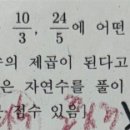 10/3, 24/5 에 어떤
의 제곱이 된다고
은 자연수를 풀이
점수 있음